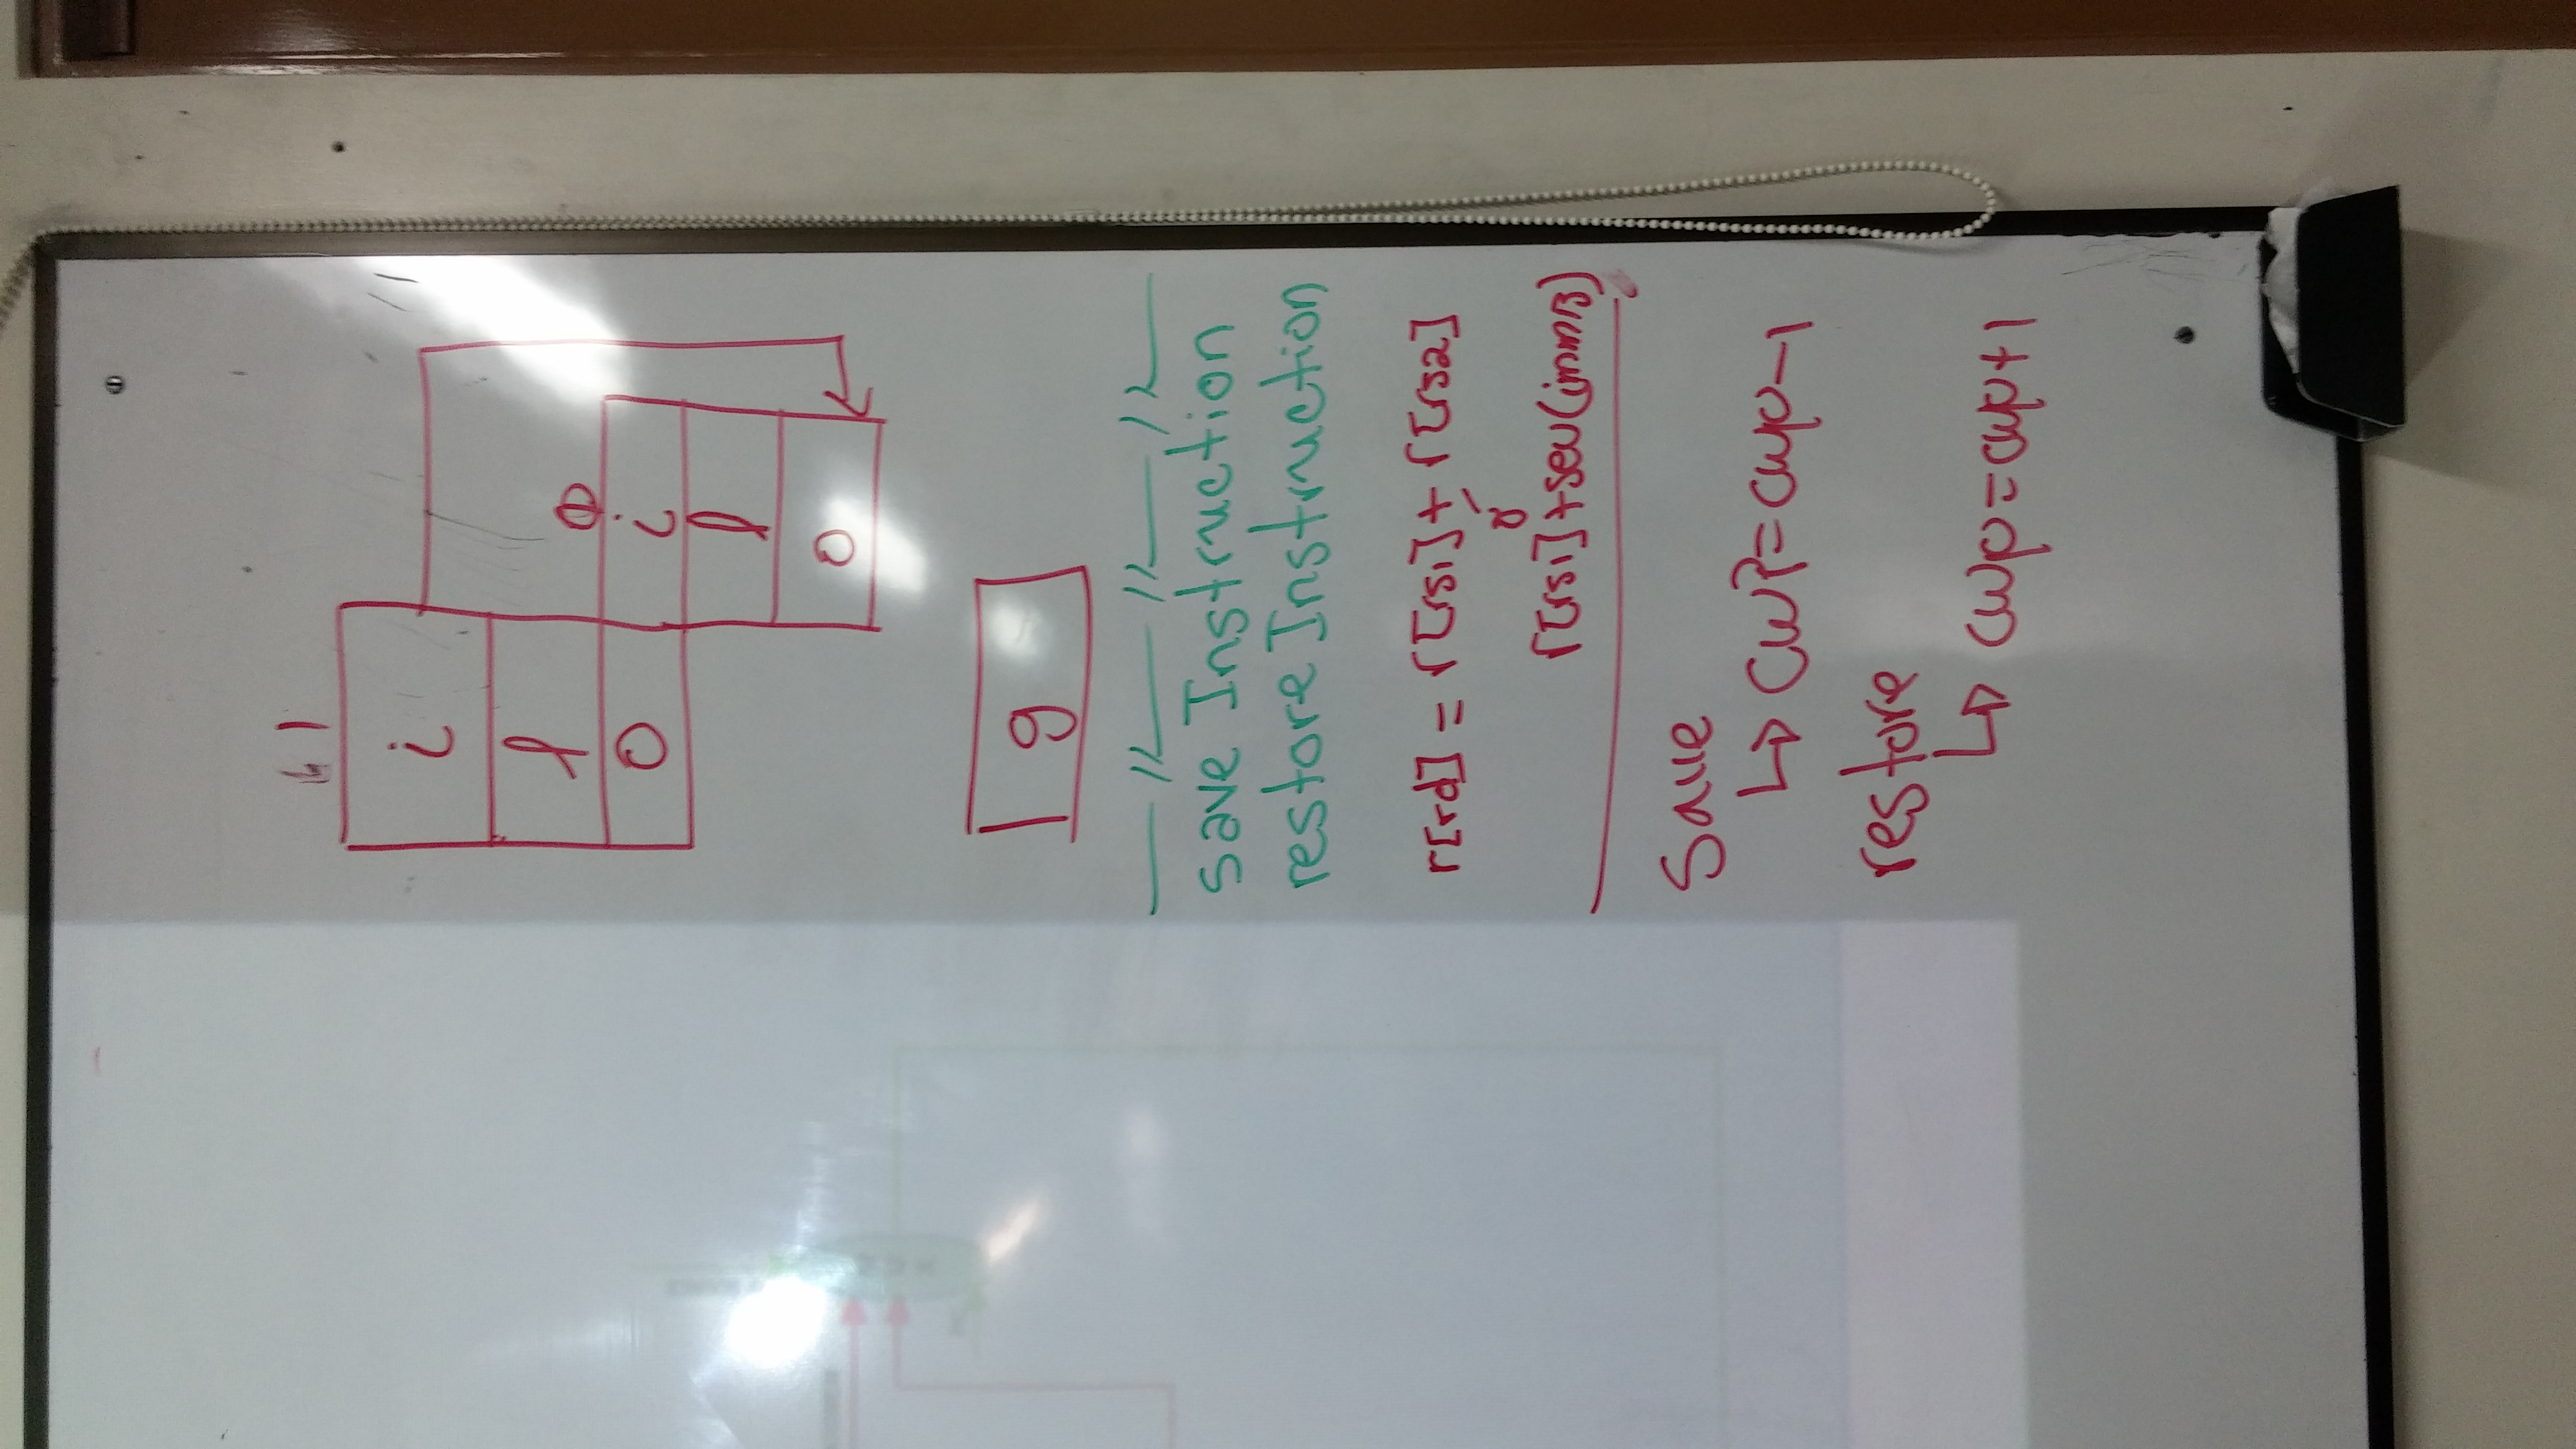 1
i
l
o
0
i
l
o
g
save Instruction
restore Instruction
r[rd] = r[rs1] + r[rs2]
ó
r[rs1] + seu(imm13)
Save
↳ CWP = cwp - 1
restore
↳ cwp = cwp + 1